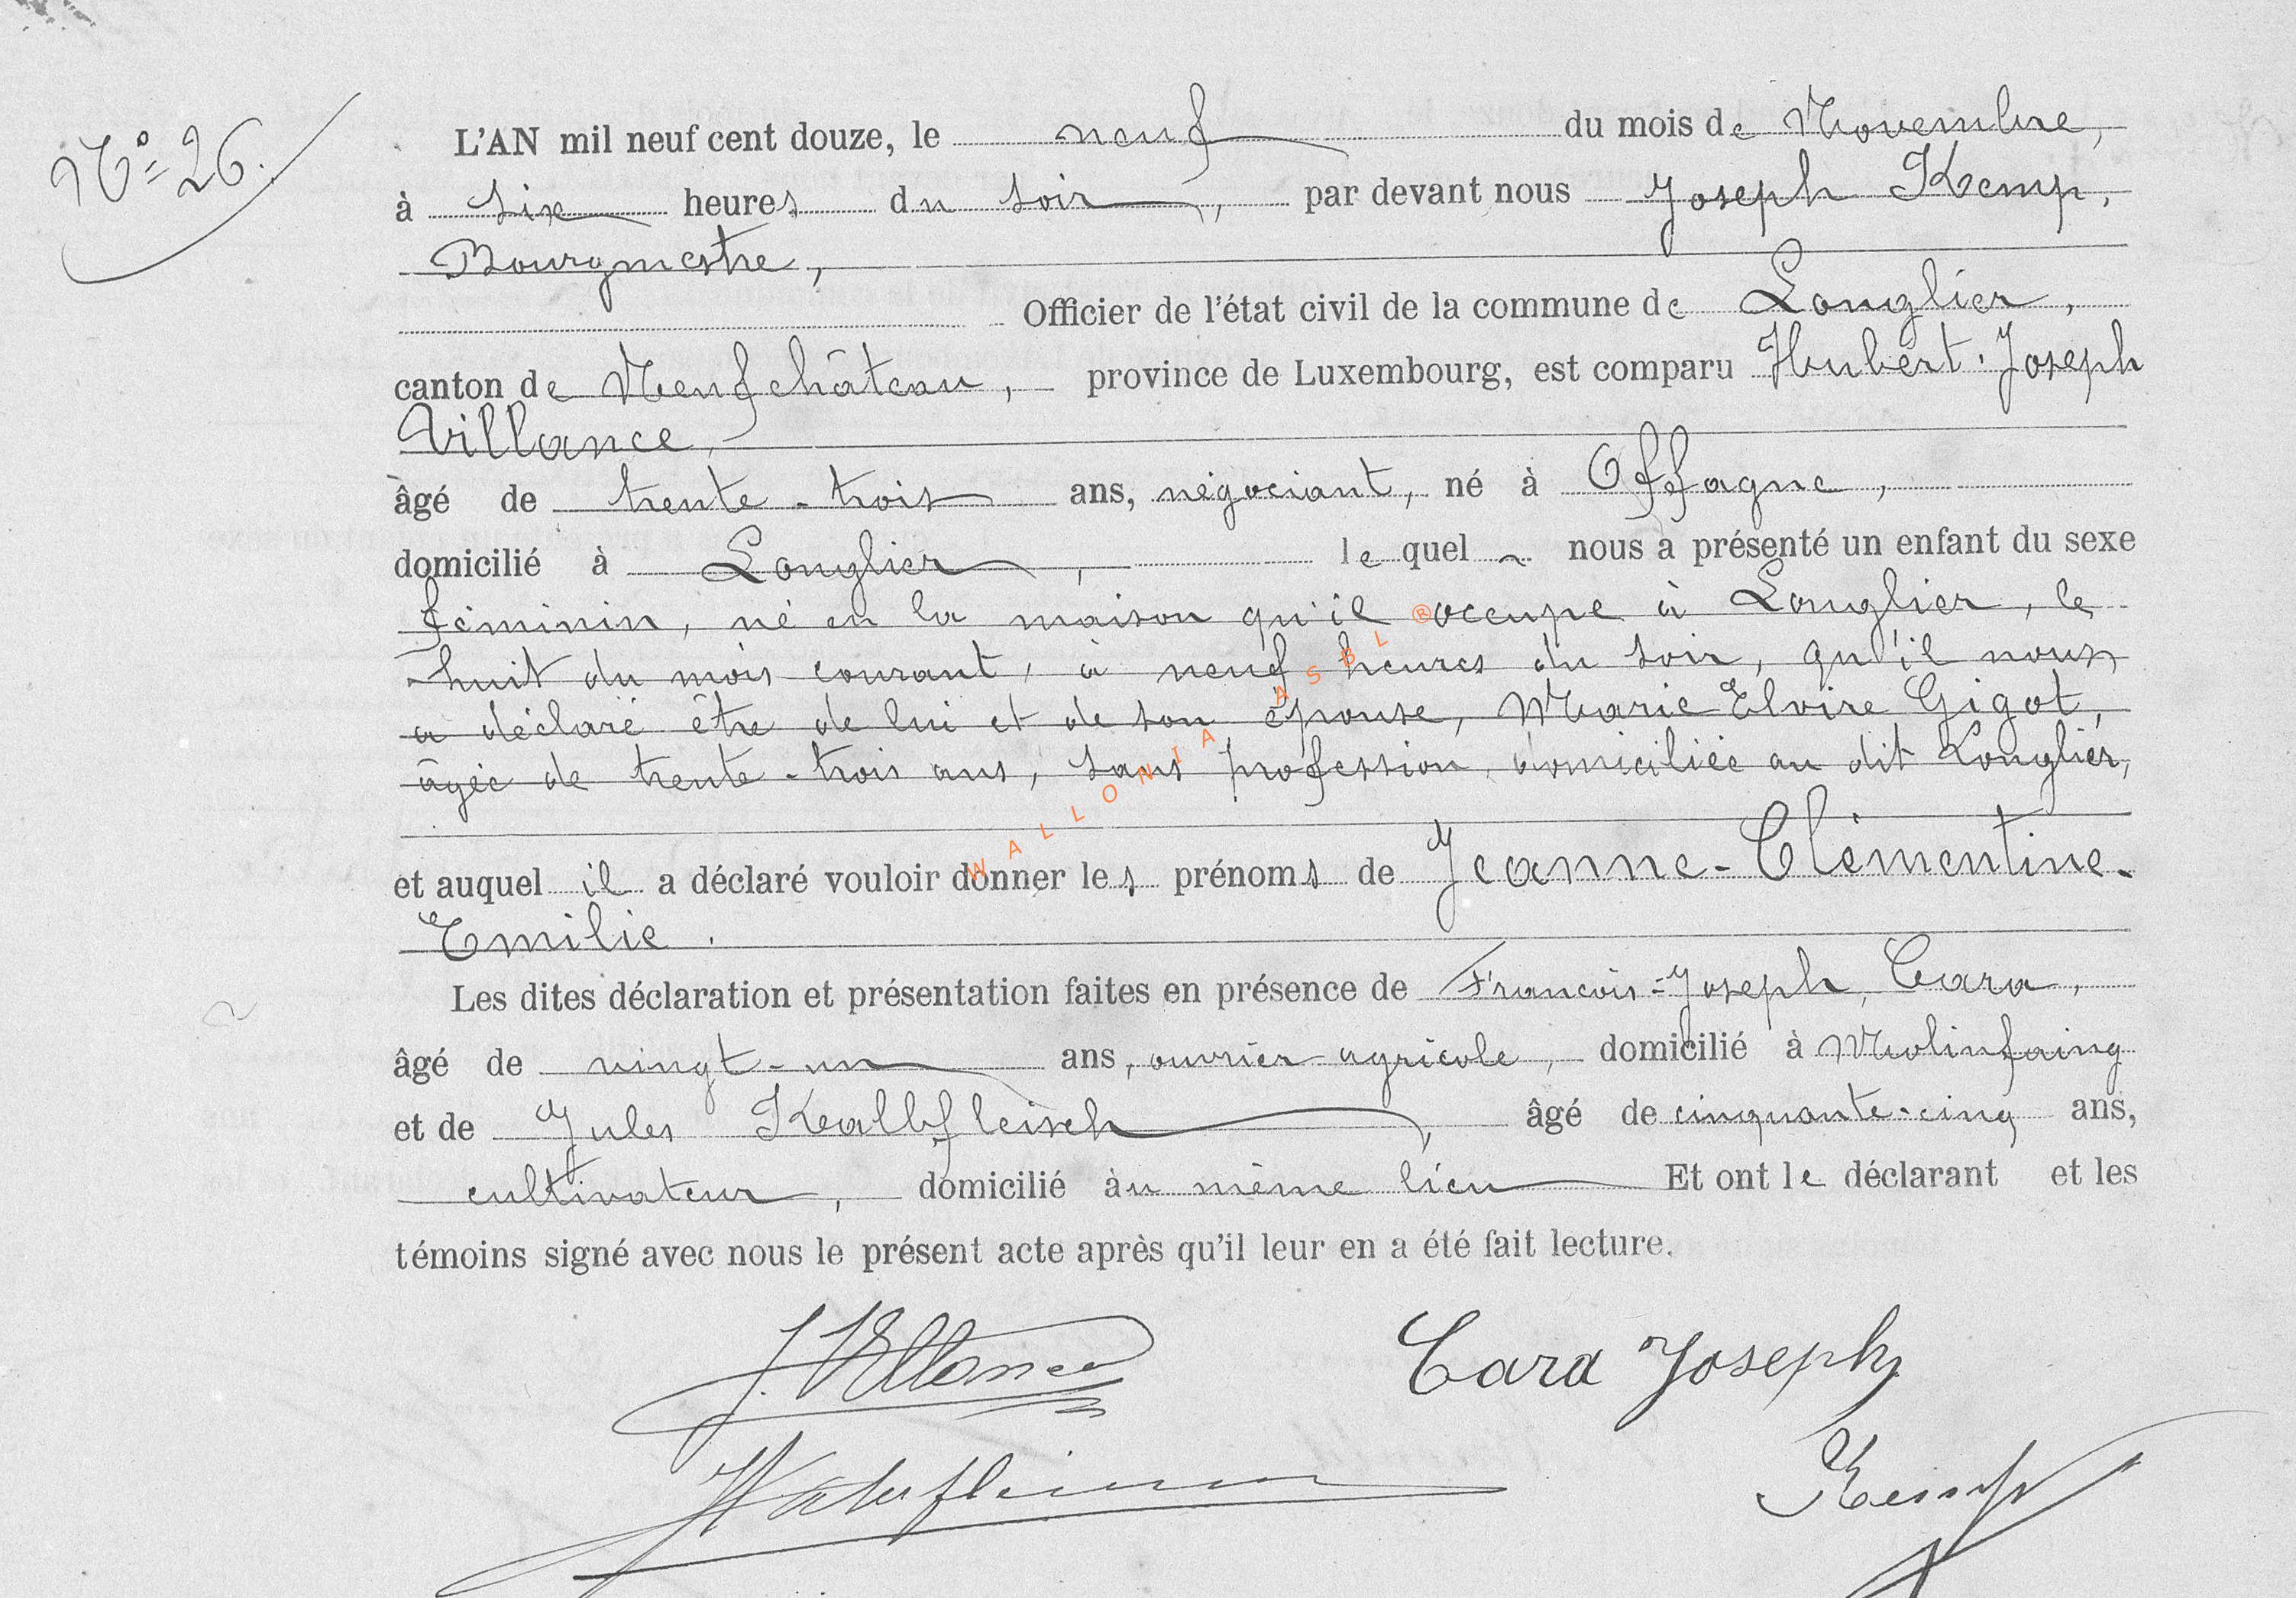 N° 26.
L'AN mil neuf cent douze, le neuf du mois de Novembre,
à six heures du soir, par devant nous Joseph Kemp,
Bourgmestre,
Officier de l'état civil de la commune de Longlier,
canton de Neufchâteau, province de Luxembourg, est comparu Hubert-Joseph
Villance,
âgé de trente-trois ans, négociant, né à Offagne,
domicilié à Longlier, lequel nous a présenté un enfant du sexe
féminin, né en la maison qu'il occupe à Longlier, le
huit du mois courant, à neuf heures du soir, qu'il nous
a déclaré être de lui et de son épouse, Marie Elvire Gigot,
âgée de trente-trois ans, sans profession, domiciliée au dit Longlier,
et auquel il a déclaré vouloir donner les prénoms de Jeanne-Clémentine-
Emilie.
Les dites déclaration et présentation faites en présence de Francois-Joseph, Cara,
âgé de vingt-un ans, ouvrier agricole, domicilié à Molinfaing
et de Jules Kalbfleisch, âgé de cinquante-cinq ans,
cultivateur, domicilié au même lieu Et ont le déclarant et les
témoins signé avec nous le présent acte après qu'il leur en a été fait lecture.
J. Villance
Cara Joseph
Kemp
WALLONIA ASBL ®